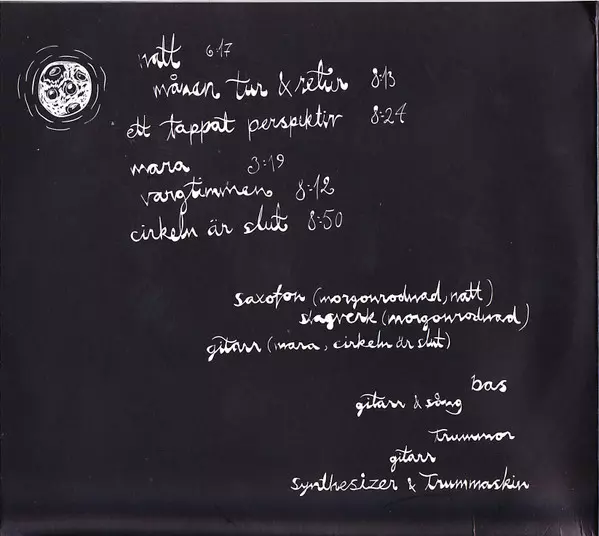 natt 6:17
månen tur & retur 8:13
ett tappat perspektiv 8:24
mara 3:19
vargtimmen 8:12
cirkeln är slut 8:50
saxofon (morgonrodnad, natt)
slagverk (morgonrodnad)
gitarr (mara, cirkeln är slut)
bas
gitarr & sång
trummor
gitarr
synthesizer & trummaskin